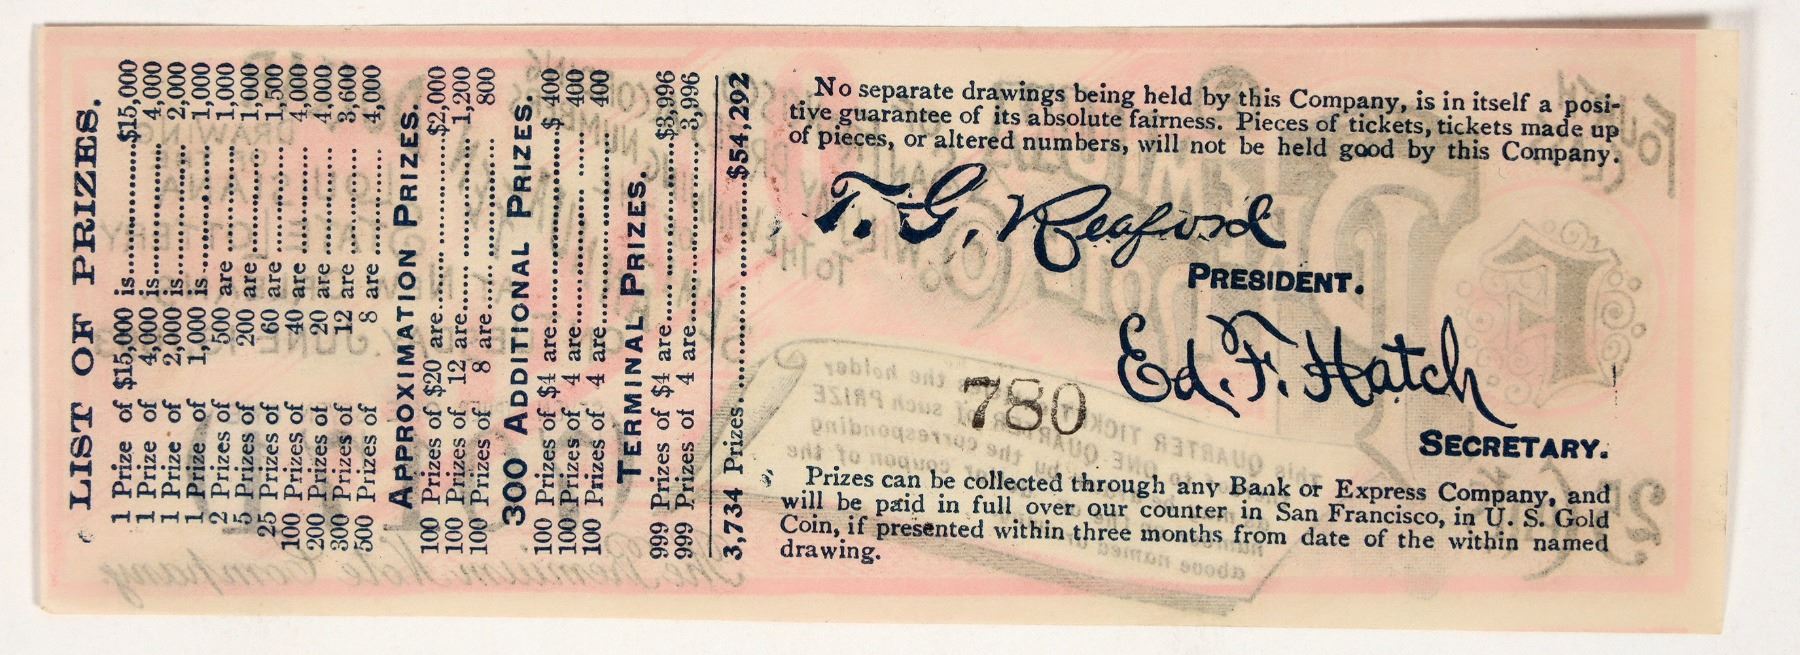 LIST OF PRIZES.
1 Prize of $15,000 is........$15,000
1 Prize of 4,000 is........ 4,000
1 Prize of 2,000 is........ 2,000
1 Prize of 1,000 is........ 1,000
2 Prizes of 500 are........ 1,000
5 Prizes of 200 are........ 1,000
25 Prizes of 60 are........ 1,500
100 Prizes of 40 are........ 4,000
200 Prizes of 20 are........ 4,000
300 Prizes of 12 are........ 3,600
500 Prizes of 8 are........ 4,000
APPROXIMATION PRIZES.
100 Prizes of $20 are........$2,000
100 Prizes of 12 are........ 1,200
100 Prizes of 8 are........ 800
300 ADDITIONAL PRIZES.
100 Prizes of $4 are........$ 400
100 Prizes of 4 are........ 400
100 Prizes of 4 are........ 400
TERMINAL PRIZES.
999 Prizes of $4 are........$3,996
999 Prizes of 4 are........ 3,996
3,734 Prizes........$54,292
No separate drawings being held by this Company, is in itself a posi-
tive guarantee of its absolute fairness. Pieces of tickets, tickets made up
of pieces, or altered numbers, will not be held good by this Company.
T. G. Reaford
PRESIDENT.
Ed. F. Hatch
SECRETARY.
780
Prizes can be collected through any Bank or Express Company, and
will be paid in full over our counter in San Francisco, in U. S. Gold
Coin, if presented within three months from date of the within named
drawing.